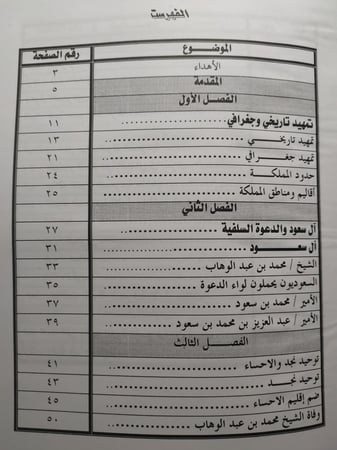 الفهرست
الموضوع رقم الصفحة
الأهداء ٣
المقدمة ٥
الفصل الأول
تمهيد تاريخي وجغرافي ١١
تمهيد تاريخي ١٣
تمهيد جغرافي ٢١
حدود المملكة ٢٤
أقاليم ومناطق المملكة ٢٥
الفصل الثاني
آل سعود والدعوة السلفية ٢٧
آل سعود ٣١
الشيخ / محمد بن عبد الوهاب ٣٣
السعوديون يحملون لواء الدعوة ٣٥
الأمير / محمد بن سعود ٣٧
الأمير / عبد العزيز بن محمد بن سعود ٣٩
الفصل الثالث
توحيد نجد والاحساء ٤١
توحيد نجد ٤٣
ضم إقليم الاحساء ٤٥
وفاة الشيخ محمد بن عبد الوهاب ٥٠